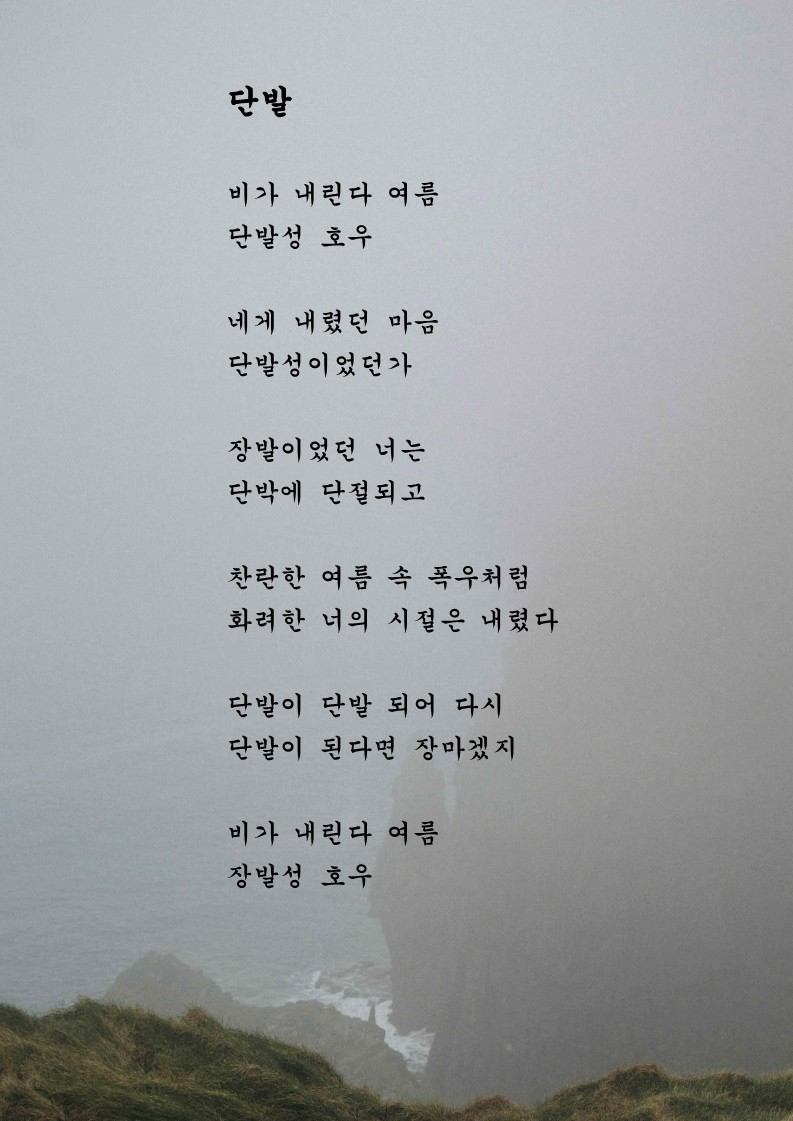 단발
비가 내린다 여름
단발성 호우
네게 내렸던 마음
단발성이었던가
장발이었던 너는
단박에 단절되고
찬란한 여름 속 폭우처럼
화려한 너의 시절은 내렸다
단발이 단발 되어 다시
단발이 된다면 장마겠지
비가 내린다 여름
장발성 호우